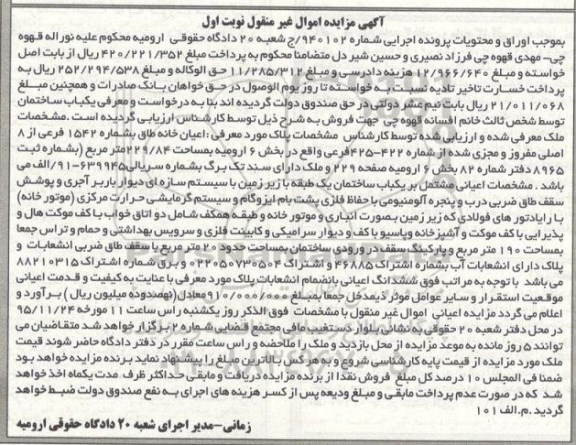 آگهی مزایده اموال غیر منقول نوبت اول
بموجب اوراق و محتویات پرونده اجرایی شماره ۹۴۰۱۰۲/ج شعبه ۲۰ دادگاه حقوقی ارومیه محکوم علیه نوراله قهوه
چی- مهدی قهوه چی فرزاد نصیری و حسین شیر دل متضامنا محکوم به پرداخت مبلغ ۴۲۰/۲۲۱/۳۵۲ ریال از بابت اصل
خواسته و مبلغ ۱۲/۹۶۶/۶۴۰ هزینه دادرسی و مبلغ ۱۱/۲۸۵/۳۱۲ حق الوکاله و مبلغ ۲۵۲/۲۹۴/۵۳۸ ریال به
پرداخت خسارت تاخیر تادیه نسبت به خواسته تا روز یوم الوصول در حق خواهان بانک صادرات و همچنین مبلغ
۲۱/۰۱۱/۰۶۸ ریال بابت نیم عشر دولتی در حق صندوق دولت گردیده اند بنا به درخواست و معرفی یکباب ساختمان
توسط شخص ثالث خانم افسانه قهوه چی جهت فروش به شرح ذیل توسط کارشناس ارزیابی گردیده است .مشخصات
ملک معرفی شده و ارزیابی شده توسط کارشناس مشخصات پلاک مورد معرفی :اعیان خانه طاق بشماره ۱۵۴۲ فرعی از ۸
اصلی مفروز و مجزی شده از شماره ۴۲۲-۴۲۵فرعی واقع در بخش ۶ ارومیه بمساحت ۲۲۹/۸۴متر مربع (بشماره ثبت
۸۹۶۵ دفتر شماره ۸۲ بخش ۶ ارومیه صفحه ۲۲۹ و ملک دارای سند تک برگ بشماره سریالی ۶۳۹۹۴۵-۹۱/الف می
باشد . مشخصات اعیانی مشتمل بر یکباب ساختمان یک طبقه با زیر زمین با سیستم سازه ای دیوار باربر آجری و پوشش
سقف طاق ضربی درب و پنجره آلومینومی با حفاظ فلزی پشت بام ایزوگام و سیستم گرمایشی حرارت مرکزی (موتور خانه)
با رادیاتور های فولادی که زیر زمین بصورت انباری و موتور خانه و طبقه همکف شامل دو اتاق خواب با کف موکت هال و
پذیرایی با کف موکت و آشپزخانه وپاسیو با کف و دیوار سرامیکی و کابینت فلزی و سرویس بهداشتی و حمام و تراس جمعا
بمساحت ۱۹۰ متر مربع و پارکینگ سقف در ورودی ساختمان بمساحت حدود ۲۰ متر مربع با سقف طاق ضربی انشعابات و
پلاک دارای انشعابات آب بشماره اشتراک ۴۶۸۸۵ و اشتراک ۰۲۲۰۵۰۷۳۰۵۰۴ و برق شماره اشتراک ۸۸۲۱۰۳۱۵
می باشد با توجه به مراتب فوق ششدانگ اعیانی بانضمام انشعابات پلاک مورد معرفی با عنایت به کیفیت و قدمت اعیانی
موقعیت استقرار و سایر عوامل موثر ذیمدخل جمعا بمبلغ ۹۱۰/۰۰۰/۰۰۰معادل(نهصدوده میلیون ریال ) برآورد و
اعلام می گردد مزایده اعیانی اموال غیر منقول با مشخصات فوق الذکر روز یکشنبه راس ساعت ۱۱ مورخه ۹۵/۱۱/۲۴
در محل دفتر شعبه ۲۰ حقوقی به نشانی بلوار دستغیب مافی مجتمع قضایی شماره ۲ برگزار خواهد شد متقاضیان می
توانند ۵ روز مانده به موعد مزایده از محل بازدید و ملک را ملاحضه و راس ساعت مقرر در دفتر دادگاه حاضر شوند قیمت
ملک مورد مزایده از قیمت پایه کارشناسی شروع و به هر کس بالاترین مبلغ را پیشنهاد نماید برنده مزایده خواهد بود
ضمنا فی المجلس ۱۰ درصد کل مبلغ فروش نقدا از برنده مزایده دریافت و مابقی حداکثر ظرف مدت یکماه اخذ خواهد
شد که در صورت عدم پرداخت مابقی و مبلغ ودیعه پس از کسر هزینه های اجرای به نفع صندوق دولت ضبط خواهد
گردید .م.الف ۱۰۱
زمانی-مدیر اجرای شعبه ۲۰ دادگاه حقوقی ارومیه